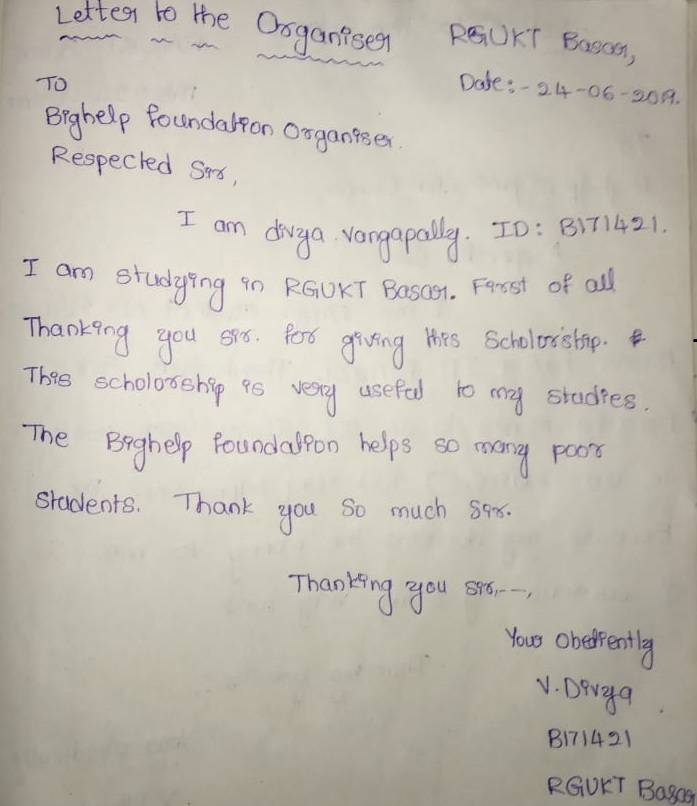 Letter to the Organiser
RGUKT Basar,
Date:- 24-06-2019.
TO
Bighelp foundation Organiser.
Respected Sir,
I am divya.vangapally. ID: B171421.
I am studying in RGUKT Basar. First of all
Thanking you sir. for giving this Scholorship.
This scholorship is very useful to my studies.
The Bighelp foundation helps so many poor
students. Thank you so much Sir.
Thanking you sir,--,
Your Obediently
V.Divya
B171421
RGUKT Basar